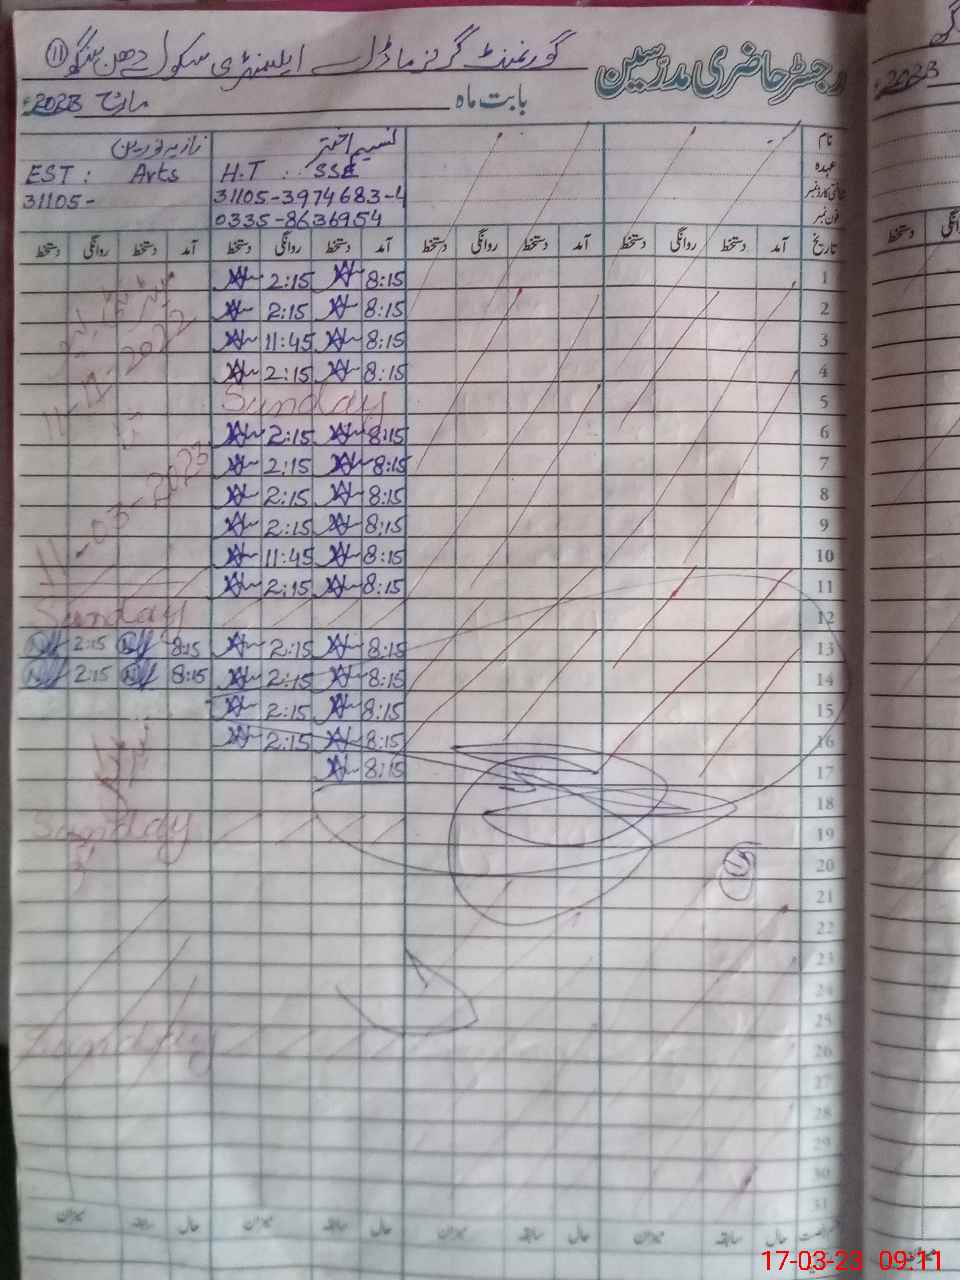 رجسٹر حاضری مدرسین
گورنمنٹ گرلز ماڈل ایلیمنٹری سکول
۱۱
بابت ماہ مارچ 2023
نام نسیم اختر نازیہ نورین
عہدہ H.T : SSE EST : Arts
شناختی کارڈ نمبر 31105-3974683-4 31105-
فون نمبر 0335-8636954
تاریخ آمد دستخط روانگی دستخط آمد دستخط روانگی دستخط آمد دستخط روانگی دستخط آمد دستخط روانگی دستخط
1 8:15 2:15
2 8:15 2:15
3 8:15 11:45
4 8:15 2:15
5 Sunday
6 8:15 2:15
7 8:15 2:15
8 8:15 2:15
9 8:15 2:15
10 8:15 11:45
11 8:15 2:15
11-11-2022
11-03-2023
12 Sunday
13 8:15 2:15 8:15 2:15
14 8:15 2:15 8:15 2:15
15 8:15 2:15
16 8:15 2:15
17 8:15
18
19 Sunday
20
21
22
23
24
25
26 Sunday
27
28
29
30
31
حال سابقہ میزان حال سابقہ میزان حال سابقہ میزان
17-03-23 09:11